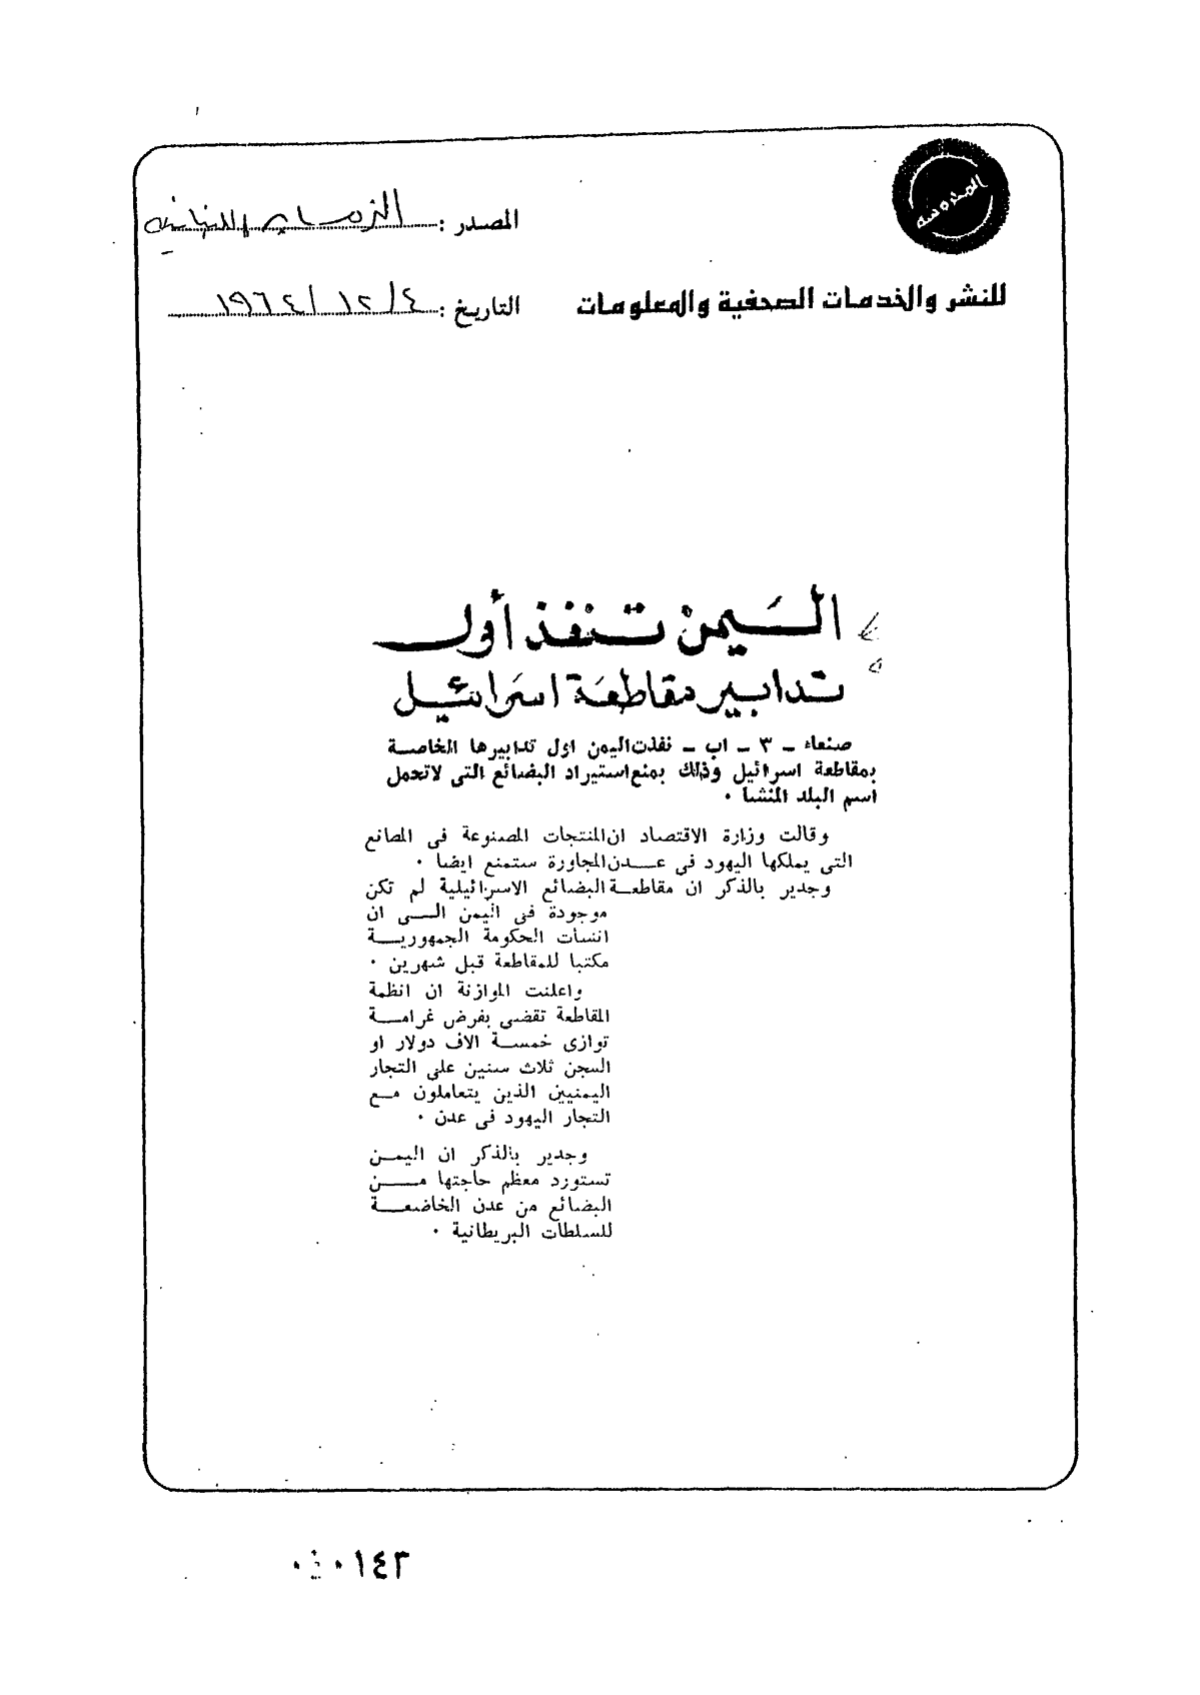 المحروسة
المصدر : اللبنانية
للنشر والخدمات الصحفية والمعلومات
التاريخ : ٤/ ١٢/ ١٩٦٤
اليمن تنفذ أول
تدابير مقاطعة اسرائيل
صنعاء – ٣ – اب – نفذت اليمن اول تدابيرها الخاصة
بمقاطعة اسرائيل وذلك بمنع استيراد البضائع التى لاتحمل
اسم البلد المنشا ·
وقالت وزارة الاقتصاد ان المنتجات المصنوعة فى المصانع
التى يملكها اليهود فى عدن المجاورة ستمنع ايضا ·
وجدير بالذكر ان مقاطعة البضائع الاسرائيلية لم تكن
موجودة فى اليمن الى ان
انشأت الحكومة الجمهورية
مكتبا للمقاطعة قبل شهرين ·
واعلنت الموازنة ان انظمة
المقاطعة تقضى بفرض غرامة
توازى خمسة الاف دولار او
السجن ثلاث سنين على التجار
اليمنيين الذين يتعاملون مع
التجار اليهود فى عدن ·
وجدير بالذكر ان اليمن
تستورد معظم حاجتها من
البضائع من عدن الخاضعة
للسلطات البريطانية ·